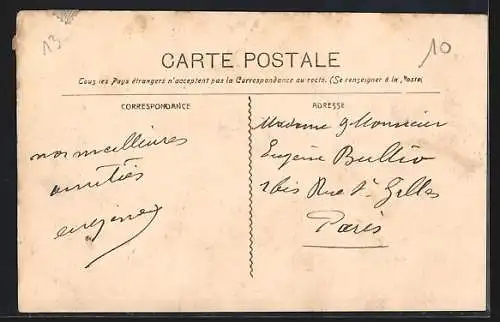 13
10
CARTE POSTALE
Tous les Pays étrangers n'acceptent pas la Correspondance au recto. (Se renseigner à la Poste)
CORRESPONDANCE
ADRESSE
nos meilleures
amitiés
Madame & Monsieur
Eugène
bis Rue St Gilles
Paris